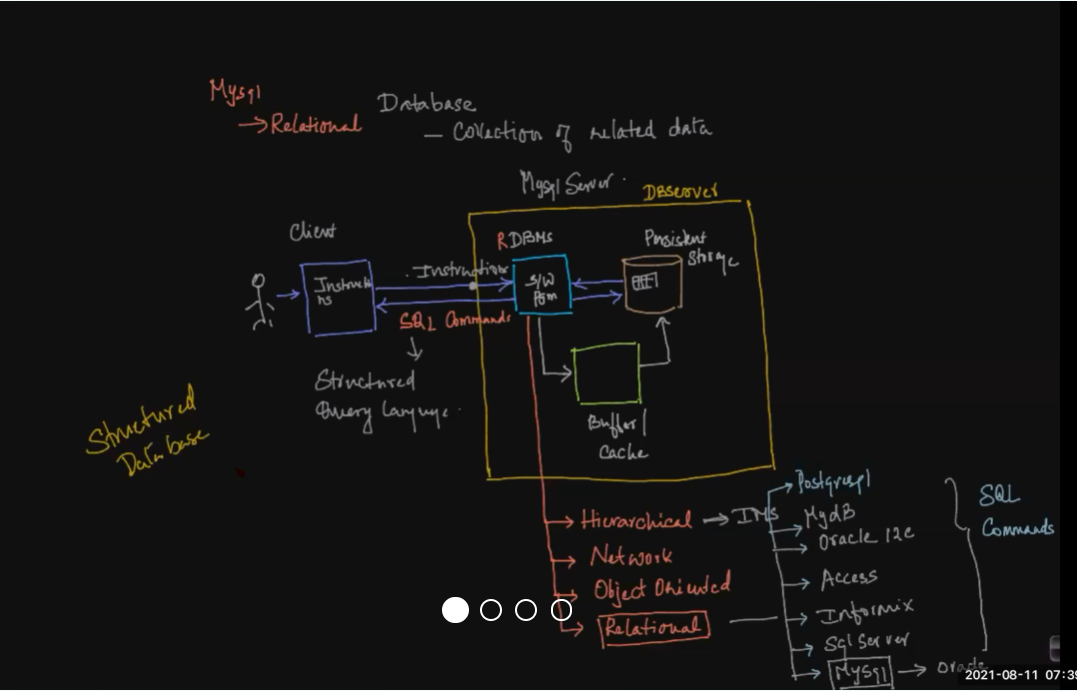 Mysql
→ Relational
Database
— Collection of related data
Mysql Server.
DBserver
Client
RDBMs
Persistent
Storage
Instructions
Instructi
ns
S/W
Pgm
SQL Commands
Structured
Query Language.
Buffer/
Cache
Structured
Database
Hierarchical → IMS
Network
Object Oriented
Relational
Postgresql
MydB
Oracle 12c
Access
Informix
Sql Server
MySql → Oracle
SQL
Commands
2021-08-11 07:39